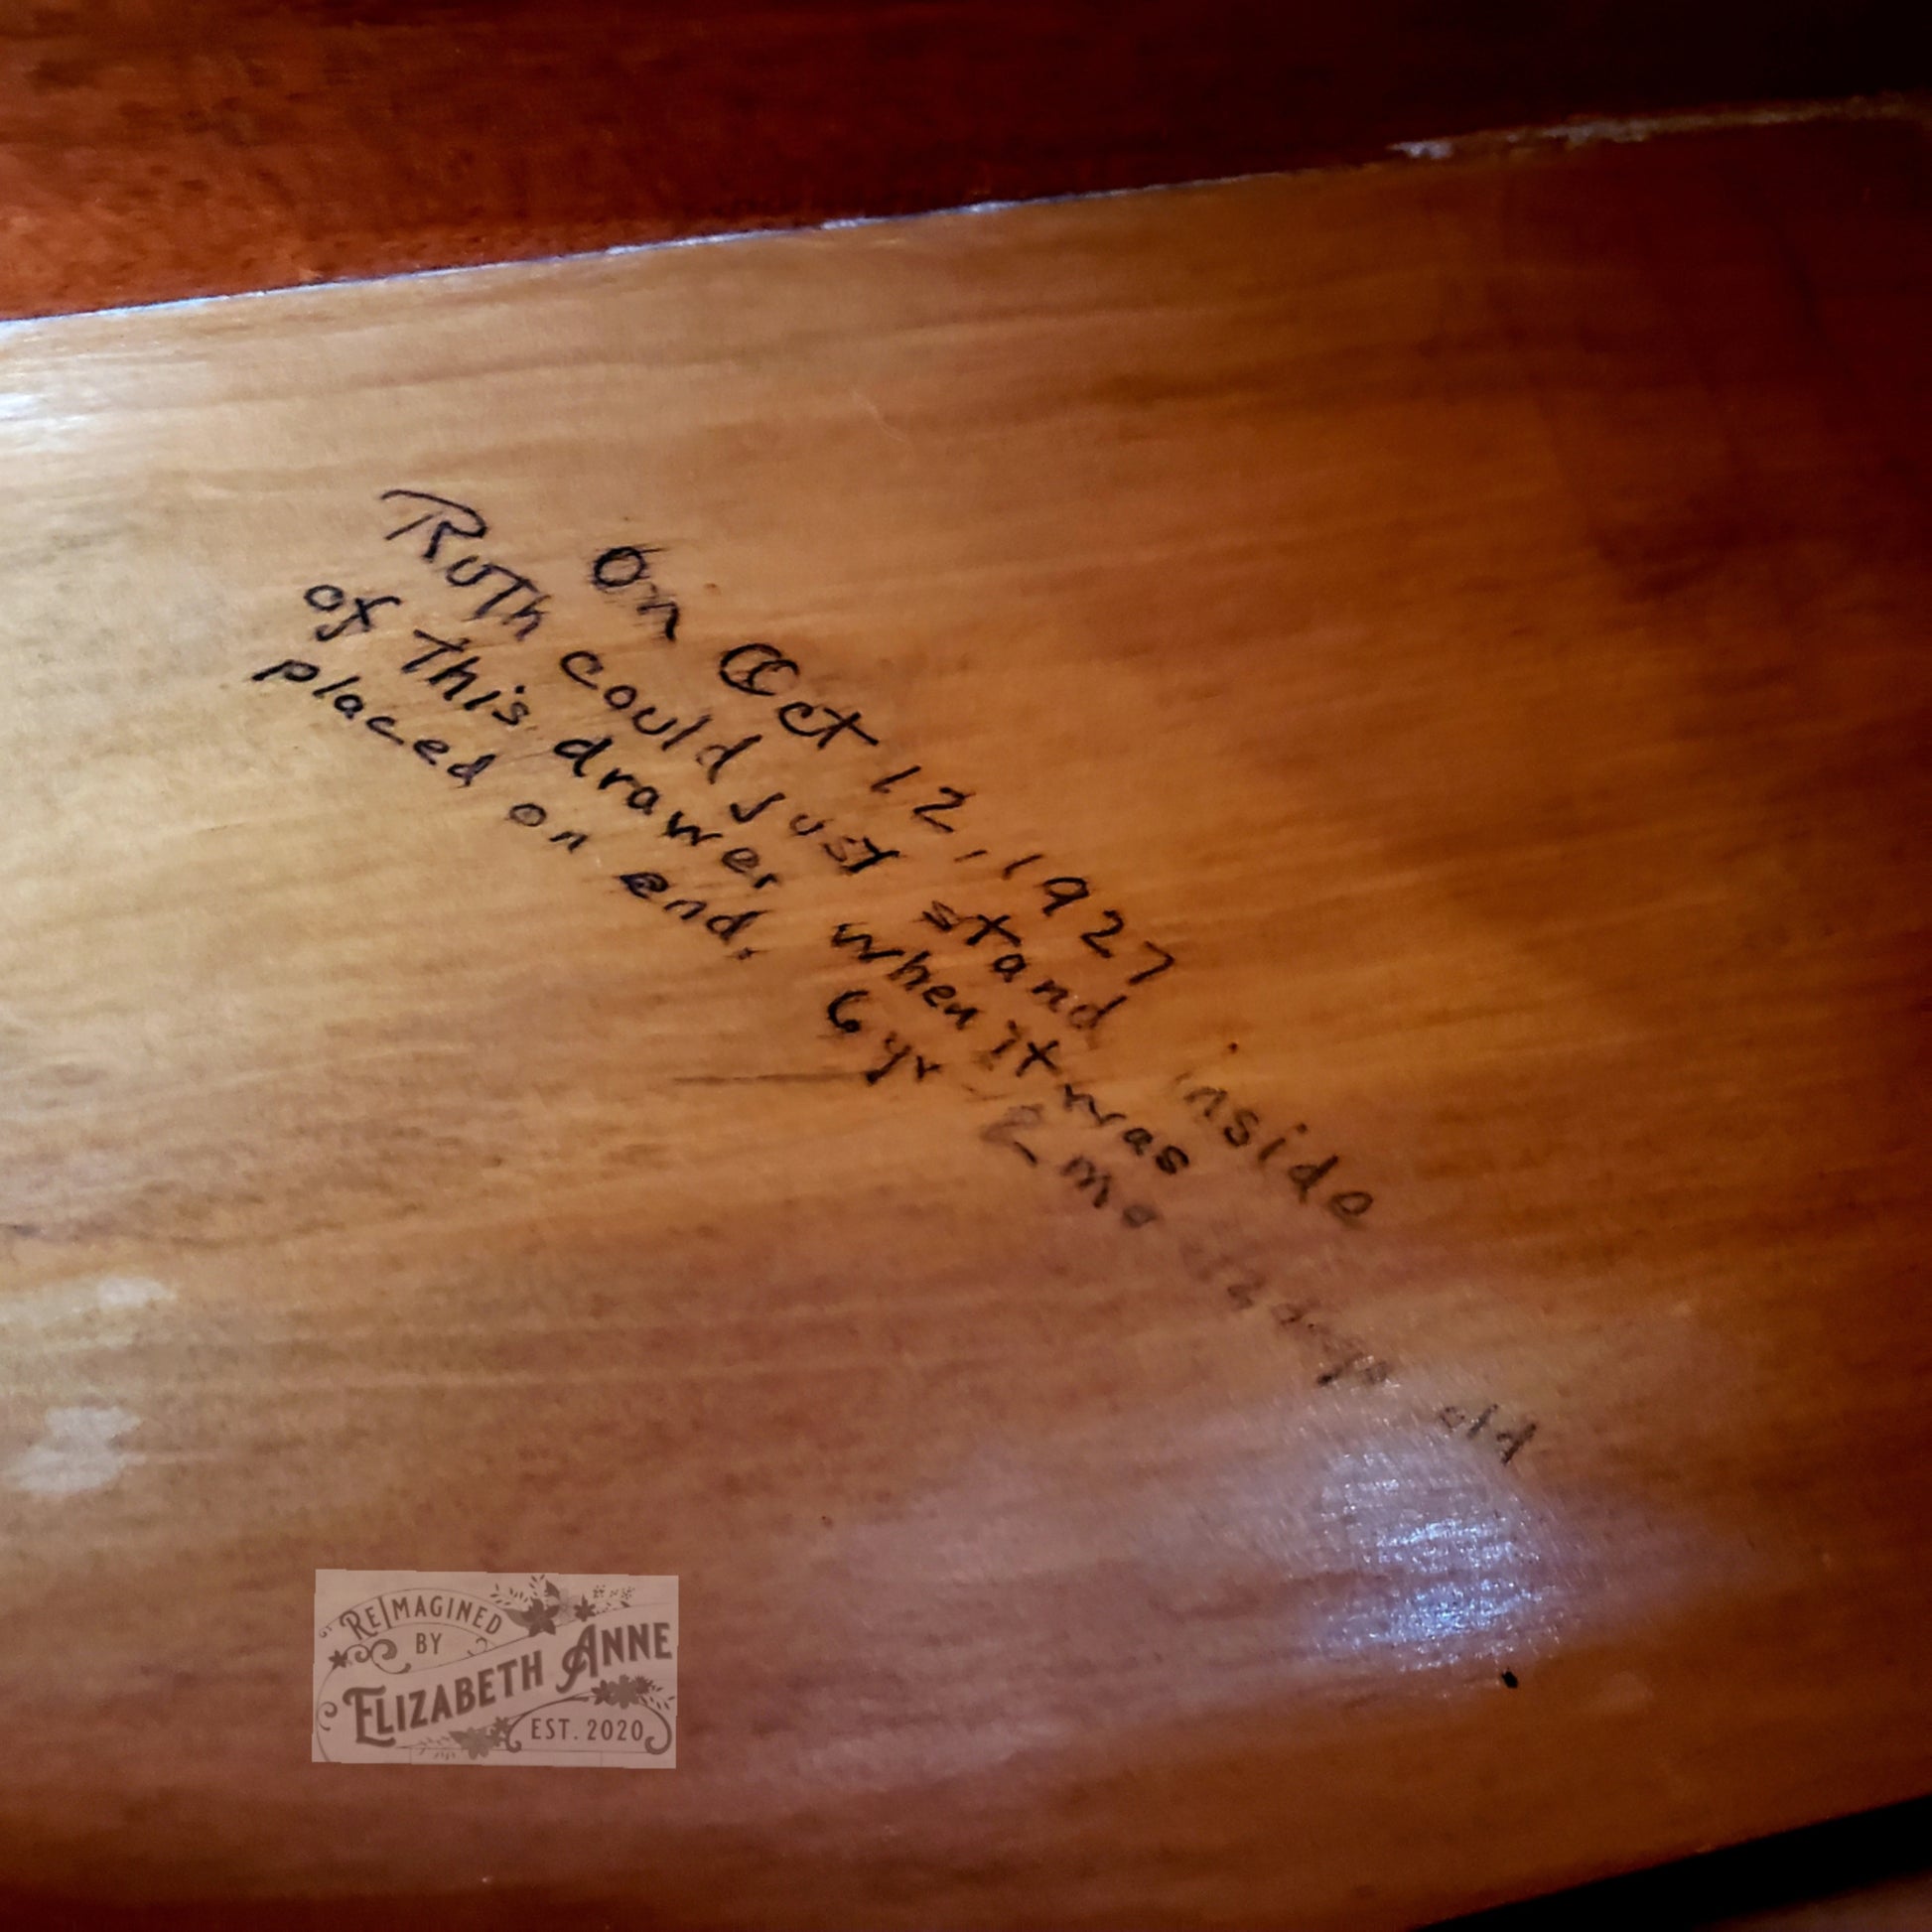 On Oct 12, 1927
Ruth could just stand inside
of this drawer when it was
placed on end.
6 yr 2 mo days old
REIMAGINED
BY
ELIZABETH ANNE
EST. 2020